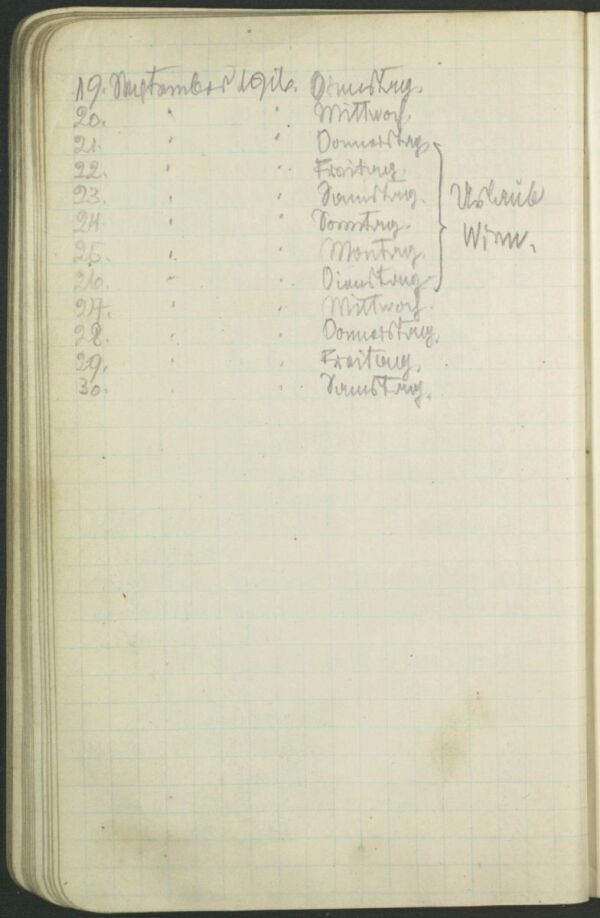 19. September 1916. Dienstag.
20. " " Mittwoch.
21. " " Donnerstag.
22. " " Freitag.
23. " " Samstag.
24. " " Sonntag.
25. " " Montag.
26. " " Dienstag.
27. " " Mittwoch.
28. " " Donnerstag.
29. " " Freitag.
30. " " Samstag.
Urlaub
Wien.